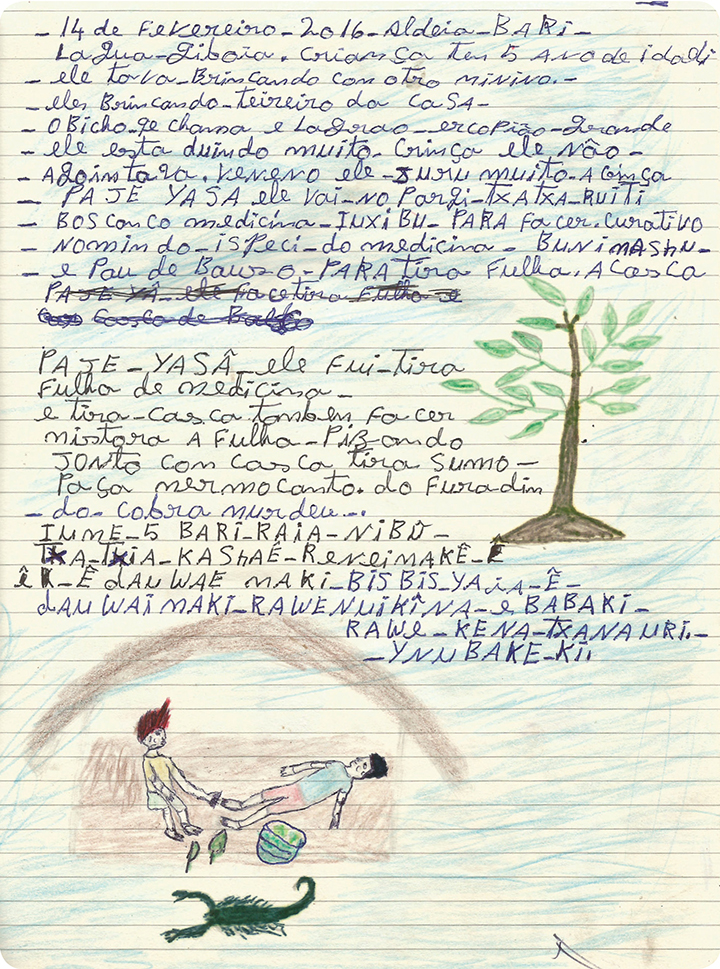 - 14 de FeveReiRo - 2016 - Aldeia - BARi -
LAgua - Jiboia. CRiANÇA ten 5 ANO de idadi
- ele tava - BRincando con otro minino. -
- eles BRincando - teireiro da CASA -
- O Bicho - qe chama e LagRao - ercoPião - gRande
- ele esta duindo muito. CRinça ele Não -
- Agointava. Veneno ele - JuRu muito - A Cinça
- PAJE YASA ele Vai - no PARgi - TXATXA - RUiTi
- BOSCON CO medicina - INXiBU - PARA FaceR. CuRativo
- Nomin do - iSPeci - do medicina - BUNiMAShU -
- e Pau de Bauso - PARA TiRa Fulha. A CASCA
PAJE YÂ - ele Facetira Fulha e
Casca de
PAJE - YASÂ - ele Fui - TiRa
Fulha de medicina -
e tira - Casca tanben Facer
mistoRA A Fulha - Pizando
JONTO CON Casca tiRa SUMO -
PaÇa mermocanto. do FuRadin
- do - CobRA muRdeu -.
INME - 5 BARi - RAiA - NiBÛ -
TXA - TXiA - KAShAÉ - ReneiMAKÊ - E
Ê - Ê dAUWAE MAKi - BiSBiS - YAiA - Ê -
dAUWAÍ MAKi - RAWENUiKÎNA - e BABAKi -
RAWE - KENA - TXANAURi. -
- YNUBAKE - Ki.